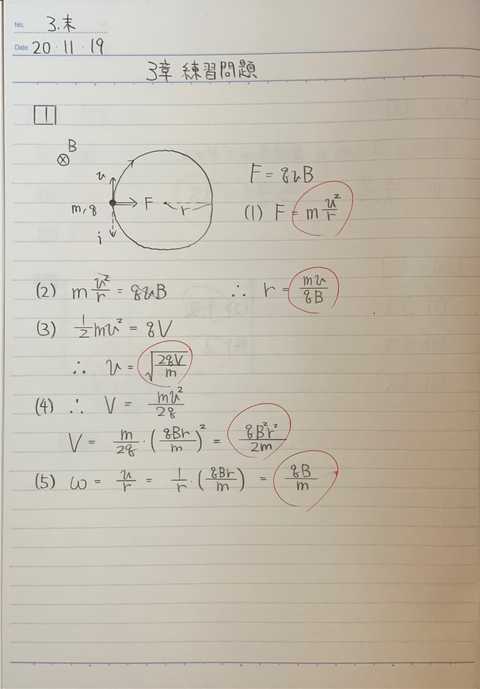 No. 3.末
Date 20・11・19
3章 練習問題
1
B
v
m,q
F
r
i
F = qvB
(1) F = m v²/r
(2) m v²/r = qvB ∴ r = mv/qB
(3) 1/2 mv² = qV
∴ v = √(2qV/m)
(4) ∴ V = mv²/2q
V = m/2q・(qBr/m)² = qB²r²/2m
(5) ω = v/r = 1/r・(qBr/m) = qB/m